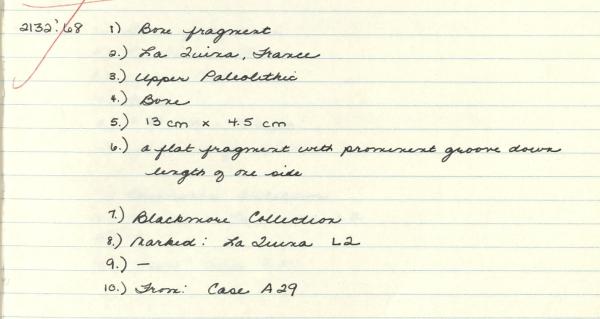 2132:68 1) Bone fragment
2.) La Quina, France
3.) Upper Paleolithic
4.) Bone
5.) 13 cm x 4.5 cm
6.) a flat fragment with prominent groove down
length of one side
7.) Blackmore Collection
8.) Marked: La Quina L2
9.) —
10.) From: Case A29